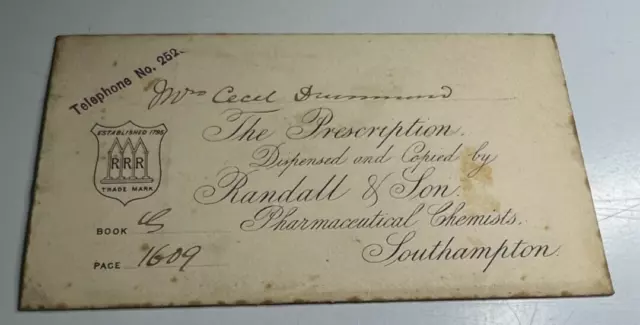 Telephone No. 252.
Mrs Cecil Drummond
The Prescription.
Dispensed and Copied by
Randall & Son.
Pharmaceutical Chemists.
Southampton.
ESTABLISHED 1795
RRR
TRADE MARK
BOOK
PAGE 1609